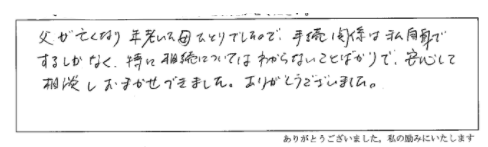 父が亡くなり年老いた母ひとりでしたので、手続関係は私自身で
するしかなく、特に相続についてはわからないことばかりで、安心して
相談しおまかせできました。ありがとうございました。
ありがとうございました。私の励みにいたします